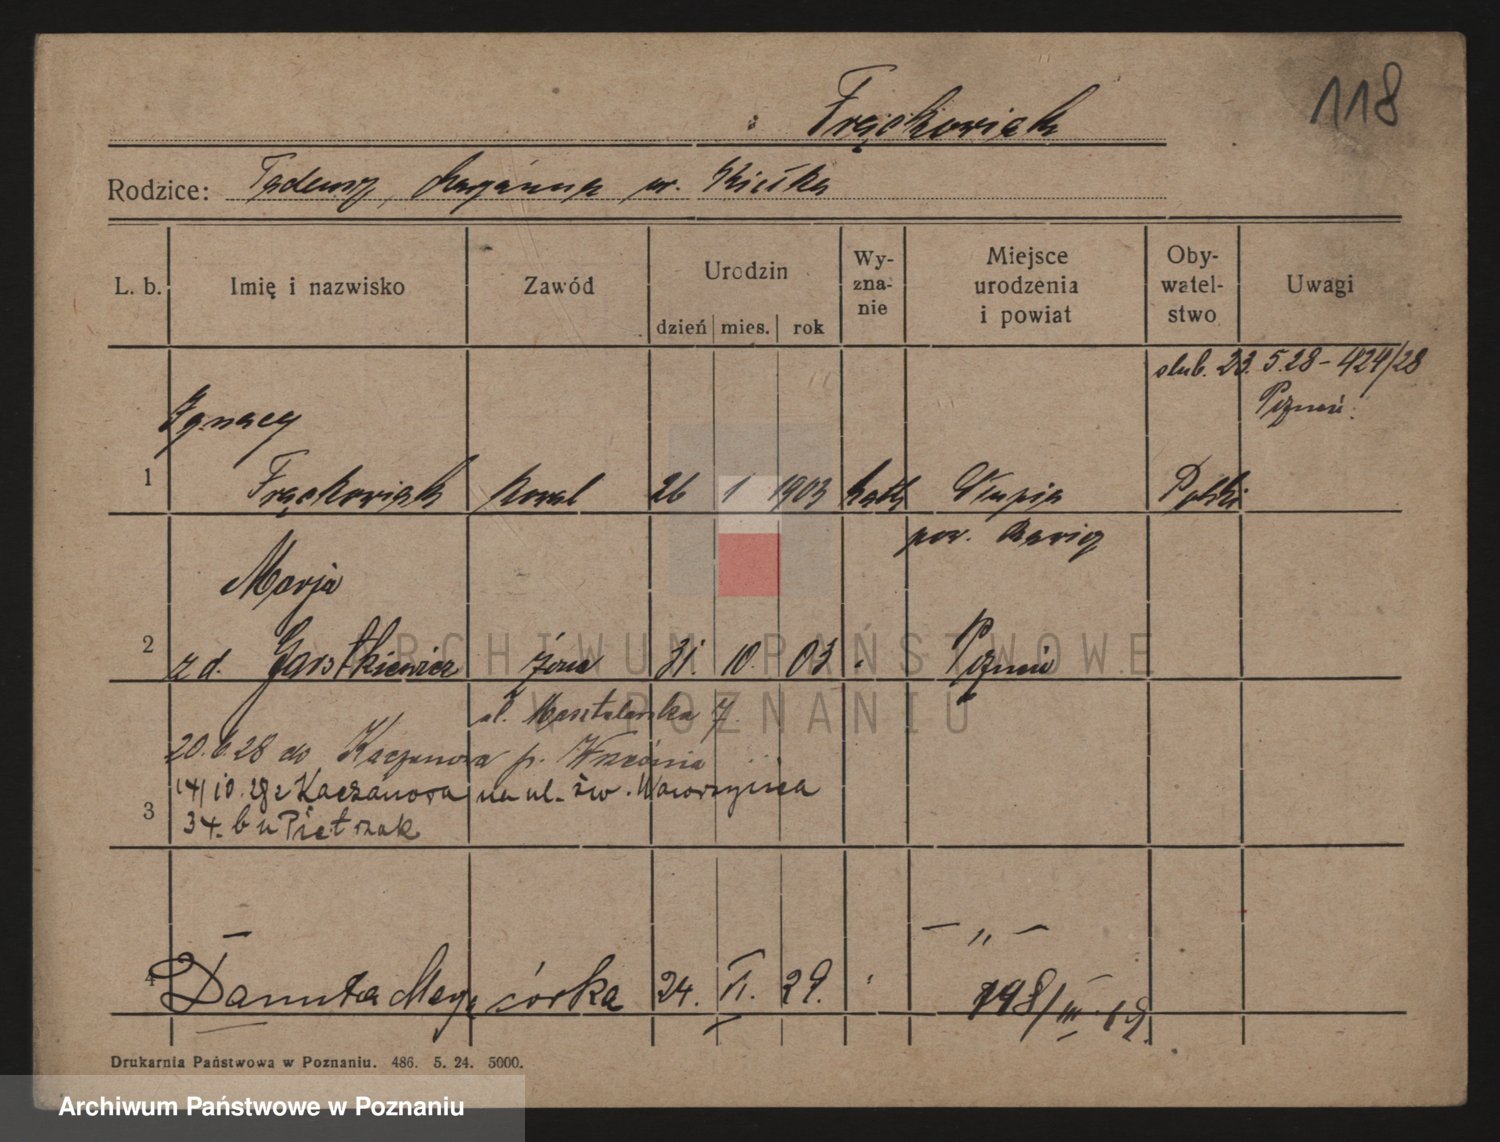 118
Frąckowiak
Rodzice: Tadeusz, Maryanna ur. Kiełka
L. b. Imię i nazwisko Zawód Urodzin Wy-zna-nie Miejsce urodzenia i powiat Oby-watel-stwo Uwagi
dzień mies. rok
slub. 23. 5.28 - 424/28
Poznań.
Ignacy
1 Frąckowiak Kowal 26 1 1903 kath Słupia Polski
pow. Rawicz
Marja
2 z d. Garstkiewicz żona 31. 10. 03 Poznań
ul. Masztalarska 7.
20.6.28 do Kaczanowa p. Września
14/10.28 z Kaczanowa na ul. św. Wawrzyńca
3 34. b u Pietrzak
— „ —
4 Danuta Marya córka 24. VI. 29. 198/III
Drukarnia Państwowa w Poznaniu. 486. 5. 24. 5000.
ARCHIWUM PAŃSTWOWE
W POZNANIU
Archiwum Państwowe w Poznaniu